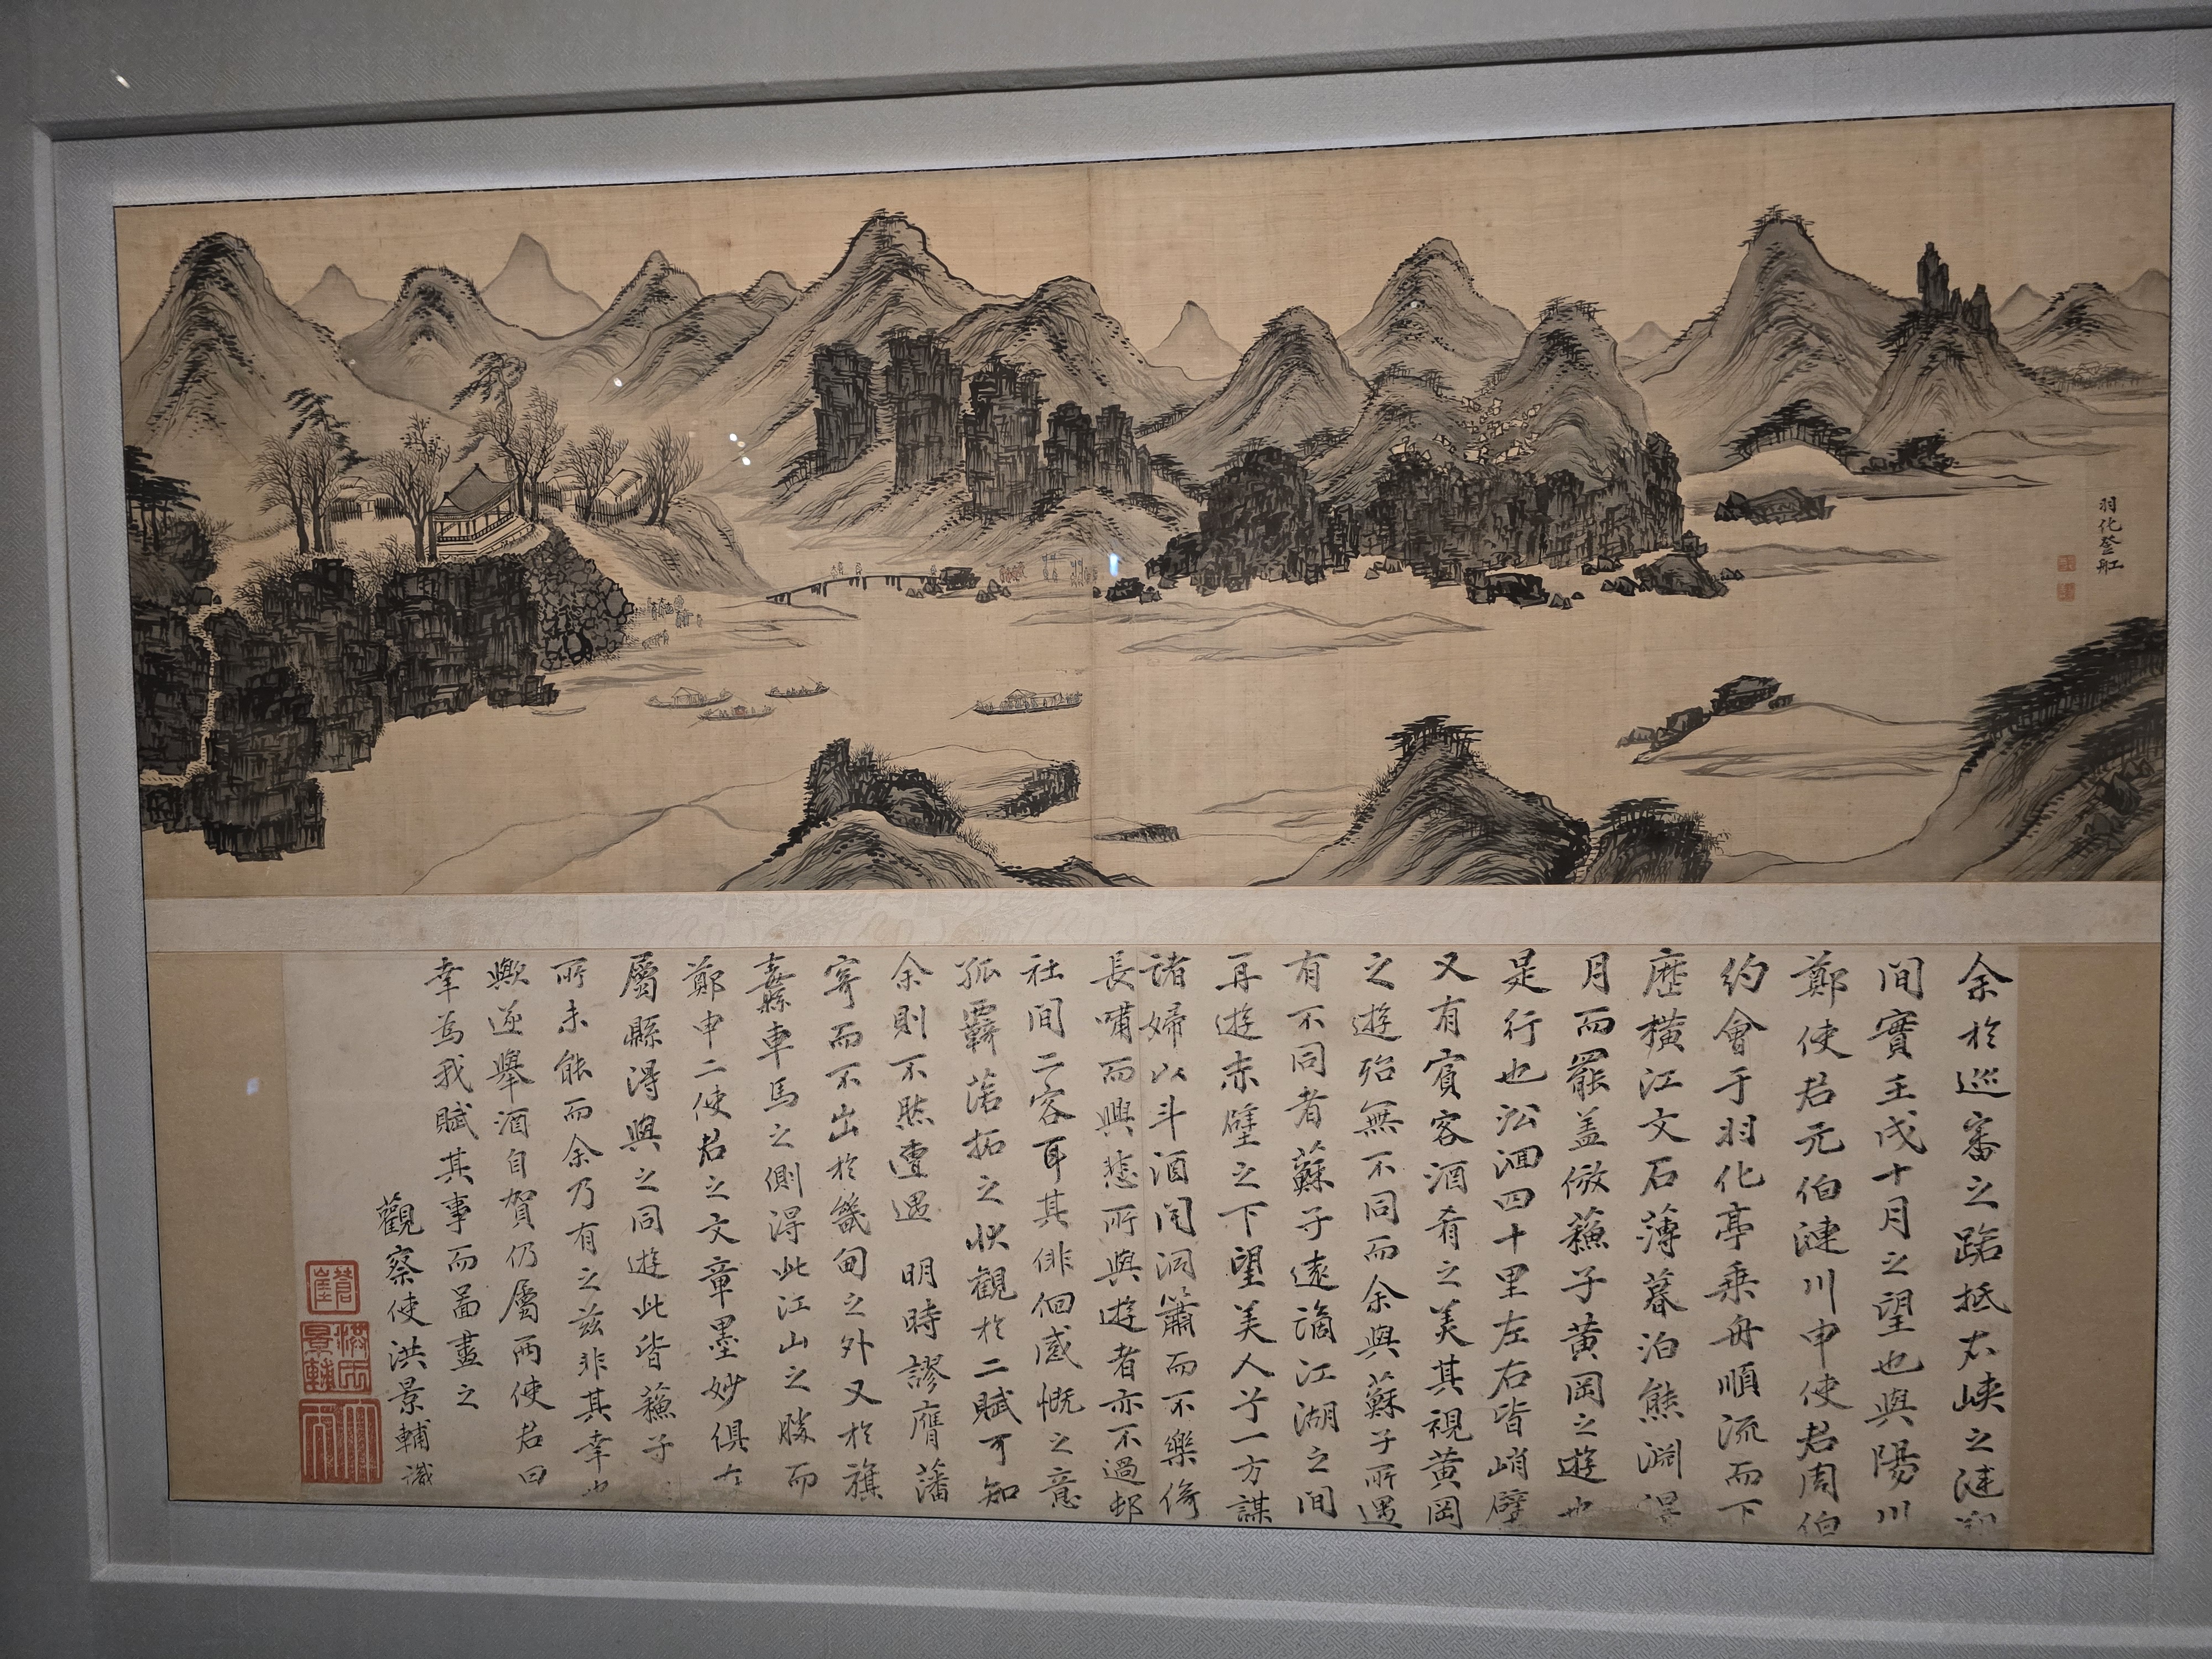 羽化登舡
余於巡審之路抵右峽之漣朔
間實壬戌十月之望也與陽川
鄭使君元伯漣川申使君周伯
約會于羽化亭乘舟順流而下
歷橫江文石薄暮泊熊淵淂
月而罷盖倣蘓子黃岡之遊也
是行也沿洄四十里左右皆峭壁
又有賓客酒肴之美其視黃岡
之遊殆無不同而余與蘇子所遇
有不同者蘇子遠謫江湖之間
再遊赤壁之下望美人兮一方謀
諸婦以斗酒聞洞簫而不樂倚
長嘯而興悲所與遊者亦不過邨
社間二客耳其俳佪感慨之意
孤羇落拓之狀觀於二賦可知
余則不然遭遇 明時謬膺藩
寄而不出於畿甸之外又於旗
纛車馬之側淂此江山之勝而
鄭申二使君之文章墨妙俱在
屬縣淂與之同遊此皆蘓子
所未能而余乃有之茲非其幸也
歟遂舉酒自賀仍屬兩使君曰
幸爲我賦其事而啚畫之
觀察使洪景輔識
蒼崖
洪氏景輔